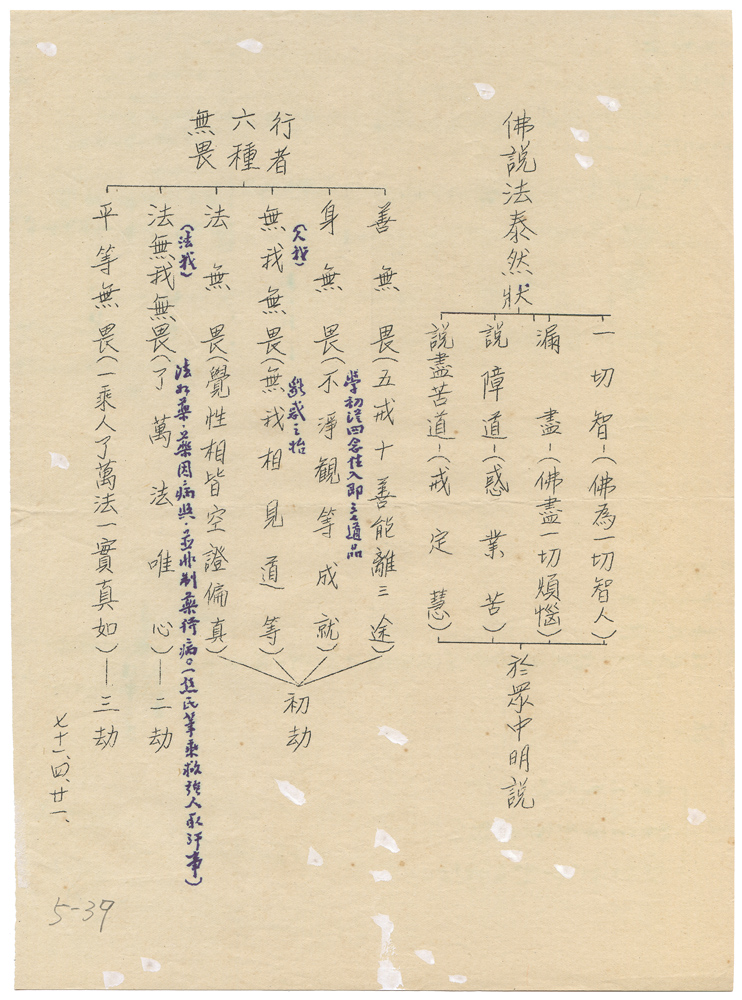 佛說法泰然狀
一切智-(佛為一切智人)
漏盡-(佛盡一切煩惱)
說障道-(惑業苦)
說盡苦道-(戒定慧)
於眾中明說
行者六種無畏
善無畏(五戒十善能離三途)
身無畏(不淨観等成就)
學初從四念住入即三七道品
(人我)
無我無畏(無我相見道等)
法無畏(覺性相皆空證偏真)
初劫
(法我)
法無我無畏(了萬法唯心)——二劫
平等無畏(一乘人了萬法一實真如)——三劫
七十一、四、廿一、
5-39